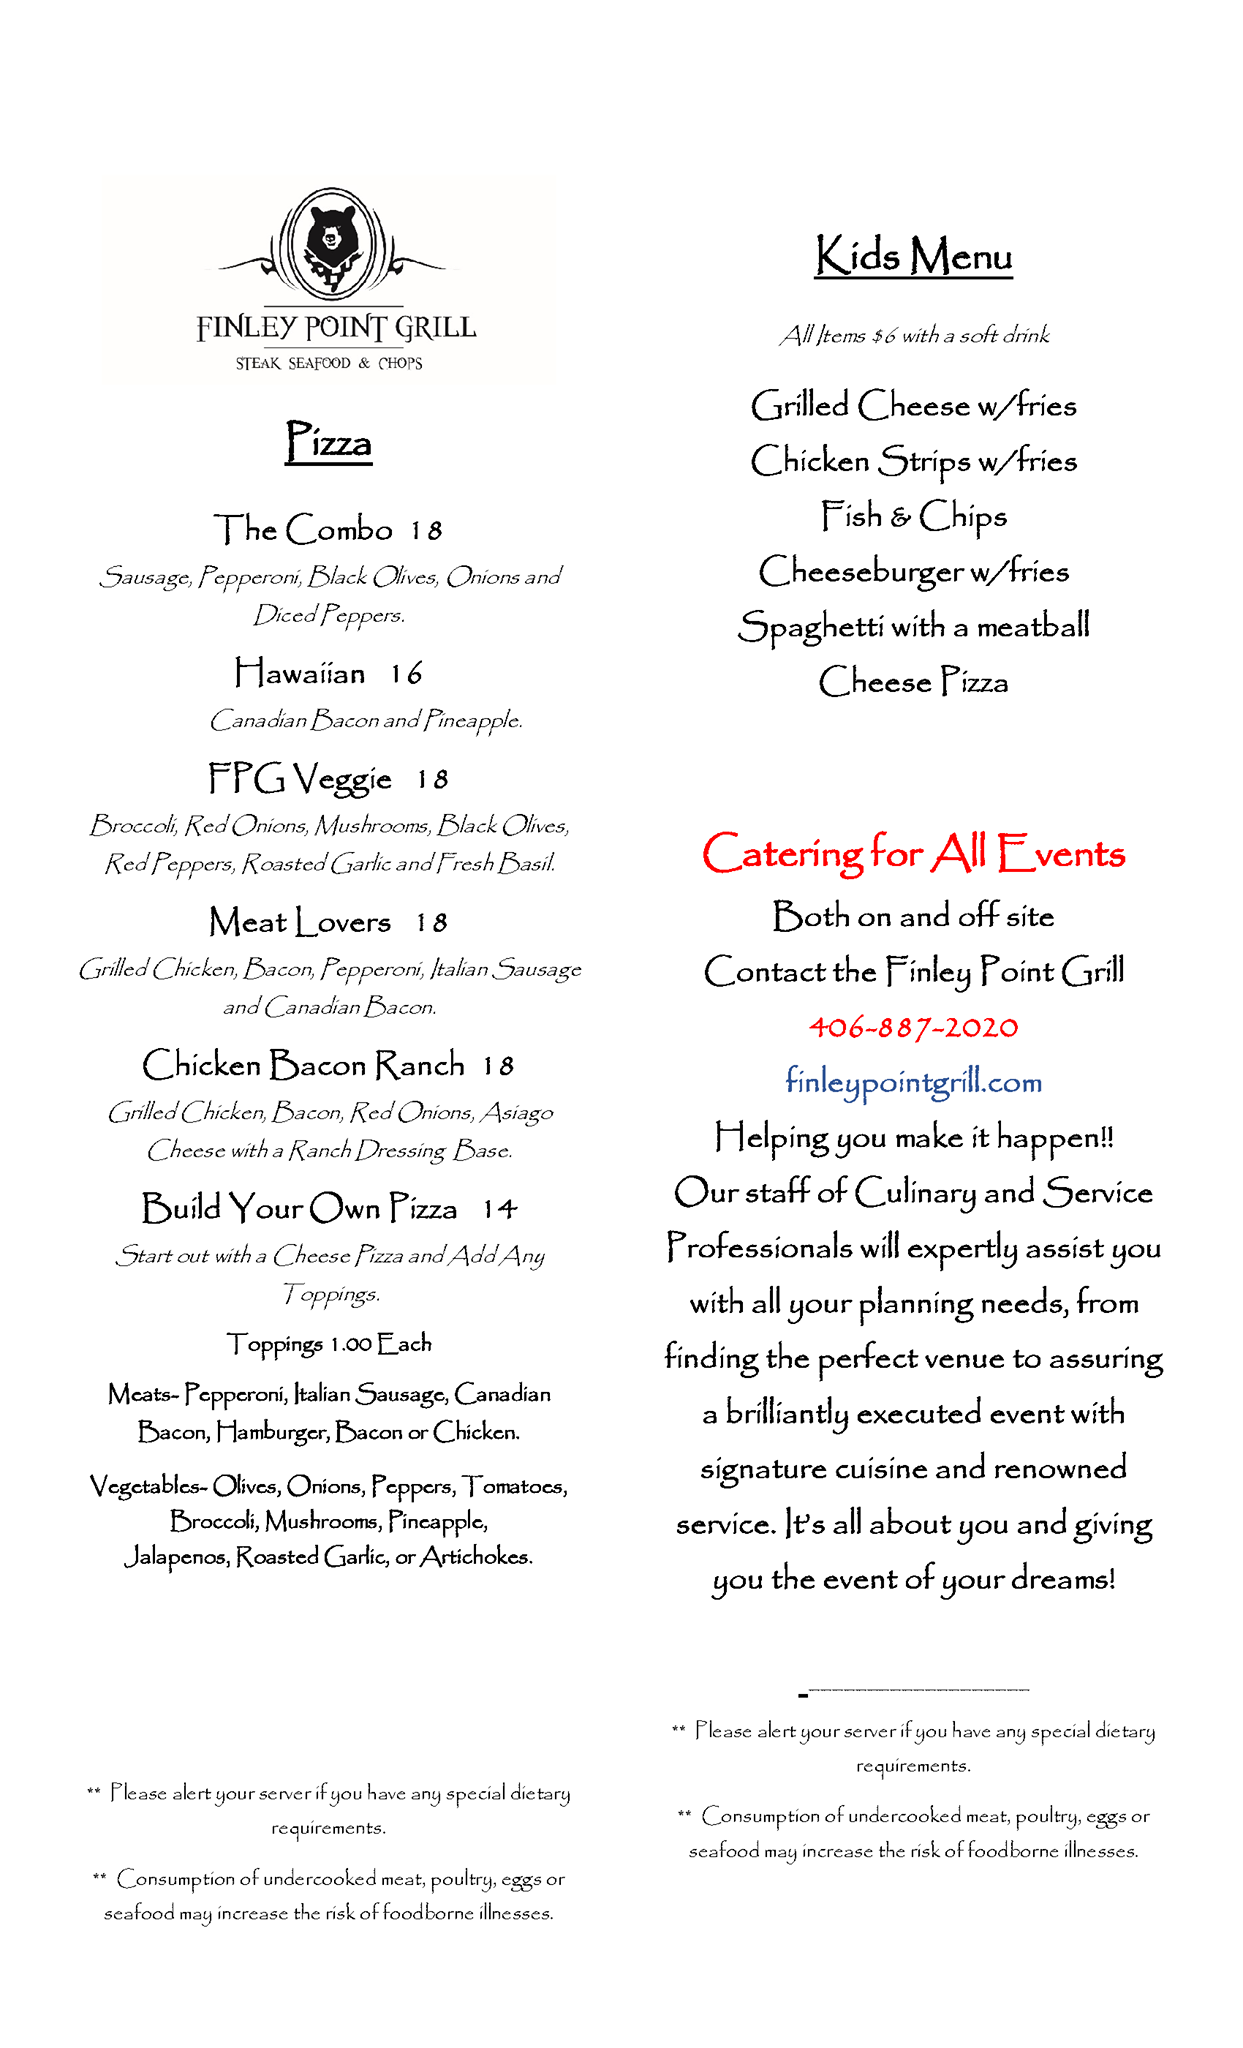 FINLEY POINT GRILL
STEAK SEAFOOD & CHOPS
Pizza
The Combo 18
Sausage, Pepperoni, Black Olives, Onions and
Diced Peppers.
Hawaiian 16
Canadian Bacon and Pineapple.
FPG Veggie 18
Broccoli, Red Onions, Mushrooms, Black Olives,
Red Peppers, Roasted Garlic and Fresh Basil.
Meat Lovers 18
Grilled Chicken, Bacon, Pepperoni, Italian Sausage
and Canadian Bacon.
Chicken Bacon Ranch 18
Grilled Chicken, Bacon, Red Onions, Asiago
Cheese with a Ranch Dressing Base.
Build Your Own Pizza 14
Start out with a Cheese Pizza and Add Any
Toppings.
Toppings 1.00 Each
Meats- Pepperoni, Italian Sausage, Canadian
Bacon, Hamburger, Bacon or Chicken.
Vegetables- Olives, Onions, Peppers, Tomatoes,
Broccoli, Mushrooms, Pineapple,
Jalapenos, Roasted Garlic, or Artichokes.
** Please alert your server if you have any special dietary
requirements.
** Consumption of undercooked meat, poultry, eggs or
seafood may increase the risk of foodborne illnesses.
Kids Menu
All Items $6 with a soft drink
Grilled Cheese w/fries
Chicken Strips w/fries
Fish & Chips
Cheeseburger w/fries
Spaghetti with a meatball
Cheese Pizza
Catering for All Events
Both on and off site
Contact the Finley Point Grill
406-887-2020
finleypointgrill.com
Helping you make it happen!!
Our staff of Culinary and Service
Professionals will expertly assist you
with all your planning needs, from
finding the perfect venue to assuring
a brilliantly executed event with
signature cuisine and renowned
service. It's all about you and giving
you the event of your dreams!
** Please alert your server if you have any special dietary
requirements.
** Consumption of undercooked meat, poultry, eggs or
seafood may increase the risk of foodborne illnesses.